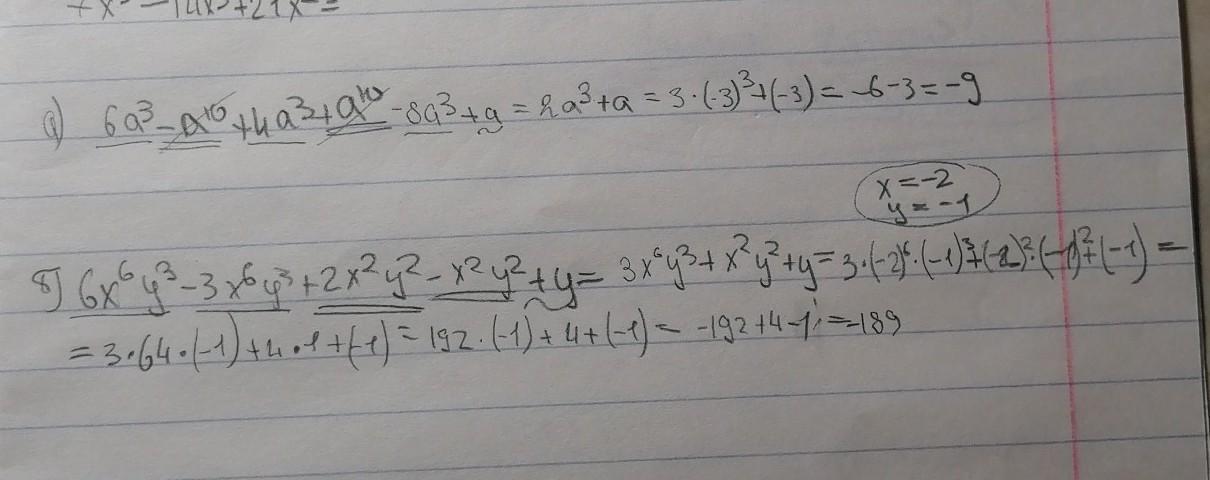 а) 6a³ - a¹⁰ + 4a³ + a¹⁰ - 8a³ + a = 2a³ + a = 3·(-3)³ + (-3) = -6 - 3 = -9
x = -2
y = -1
б) 6x⁶y³ - 3x⁶y³ + 2x²y² - x²y² + y = 3x⁶y³ + x²y² + y = 3·(-2)⁶·(-1)³ + (-2)²·(-1)² + (-1) =
= 3·64·(-1) + 4·1 + (-1) = 192·(-1) + 4 + (-1) = -192 + 4 - 1 = -189